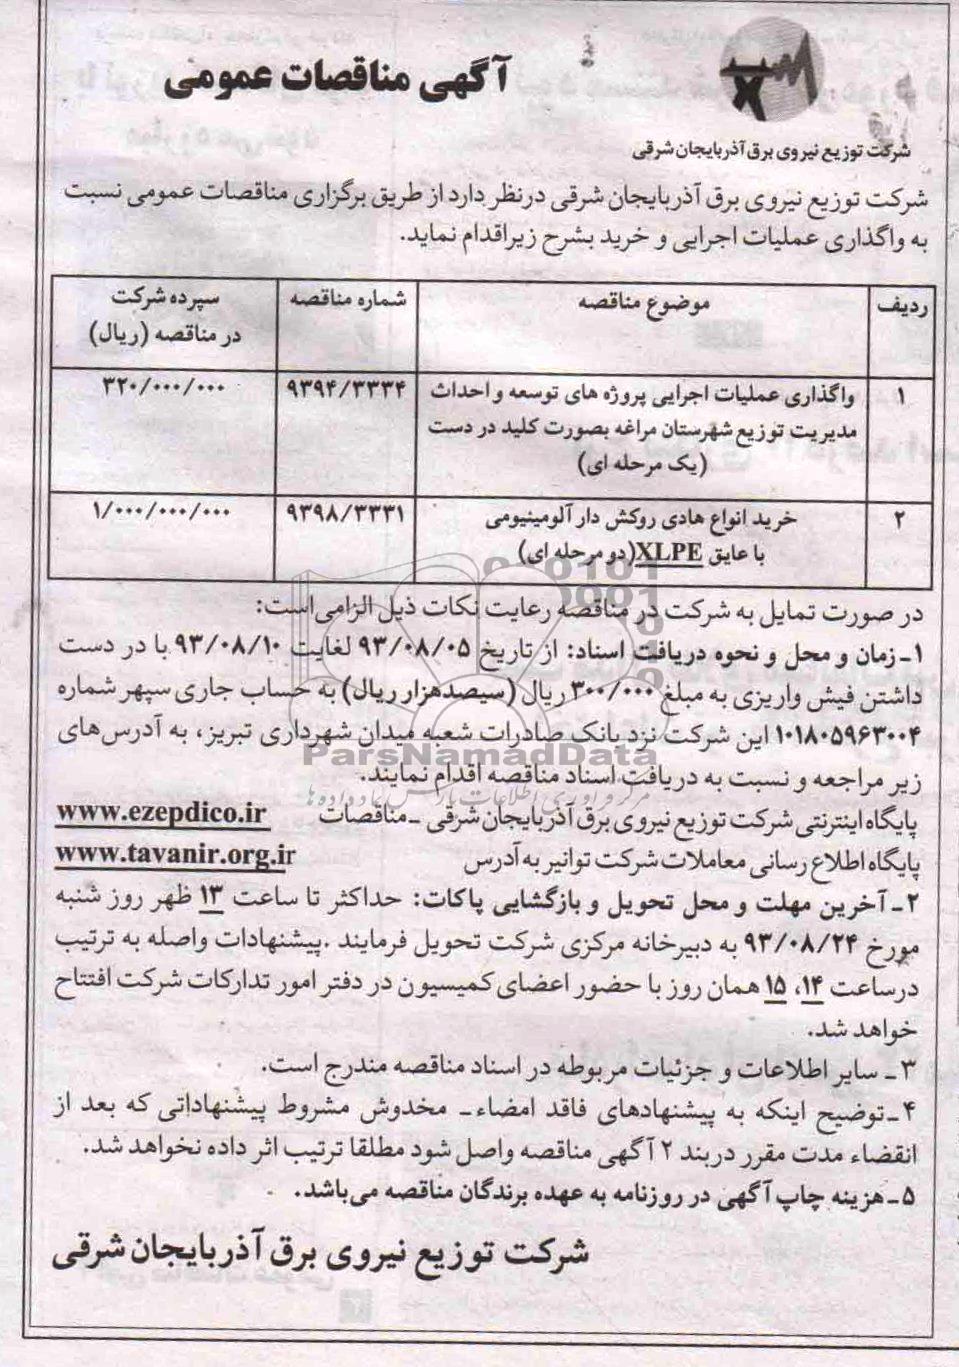 آگهی مناقصات عمومی
شرکت توزیع نیروی برق آذربایجان شرقی
شرکت توزیع نیروی برق آذربایجان شرقی درنظر دارد از طریق برگزاری مناقصات عمومی نسبت
به واگذاری عملیات اجرایی و خرید بشرح زیر اقدام نماید.
ردیف موضوع مناقصه شماره مناقصه سپرده شرکت
در مناقصه (ریال)
۱ واگذاری عملیات اجرایی پروژه های توسعه و احداث ۹۳۹۴/۳۳۳۴ ۳۲۰/۰۰۰/۰۰۰
مدیریت توزیع شهرستان مراغه بصورت کلید در دست
(یک مرحله ای)
۲ خرید انواع هادی روکش دار آلومینیومی ۹۳۹۸/۳۳۳۱ ۱/۰۰۰/۰۰۰/۰۰۰
با عایق XLPE(دو مرحله ای)
در صورت تمایل به شرکت در مناقصه رعایت نکات ذیل الزامی است:
۱ـ زمان و محل و نحوه دریافت اسناد: از تاریخ ۹۳/۰۸/۰۵ لغایت ۹۳/۰۸/۱۰ با در دست
داشتن فیش واریزی به مبلغ ۳۰۰/۰۰۰ ریال (سیصدهزار ریال) به حساب جاری سپهر شماره
۱۰۱۸۰۵۹۶۳۰۰۴ این شرکت نزد بانک صادرات شعبه میدان شهرداری تبریز، به آدرس های
ParsNamadData
زیر مراجعه و نسبت به دریافت اسناد مناقصه اقدام نمایند.
پایگاه اینترنتی شرکت توزیع نیروی برق آذربایجان شرقی ـ مناقصات www.ezepdico.ir
پایگاه اطلاع رسانی معاملات شرکت توانیر به آدرس www.tavanir.org.ir
۲ـ آخرین مهلت و محل تحویل و بازگشایی پاکات: حداکثر تا ساعت ۱۳ ظهر روز شنبه
مورخ ۹۳/۰۸/۲۴ به دبیرخانه مرکزی شرکت تحویل فرمایند .پیشنهادات واصله به ترتیب
درساعت ۱۴، ۱۵ همان روز با حضور اعضای کمیسیون در دفتر امور تدارکات شرکت افتتاح
خواهد شد.
۳ ـ سایر اطلاعات و جزئیات مربوطه در اسناد مناقصه مندرج است.
۴ـ توضیح اینکه به پیشنهادهای فاقد امضاء ـ مخدوش مشروط پیشنهاداتی که بعد از
انقضاء مدت مقرر دربند ۲ آگهی مناقصه واصل شود مطلقا ترتیب اثر داده نخواهد شد.
۵ـ هزینه چاپ آگهی در روزنامه به عهده برندگان مناقصه می باشد.
شرکت توزیع نیروی برق آذربایجان شرقی